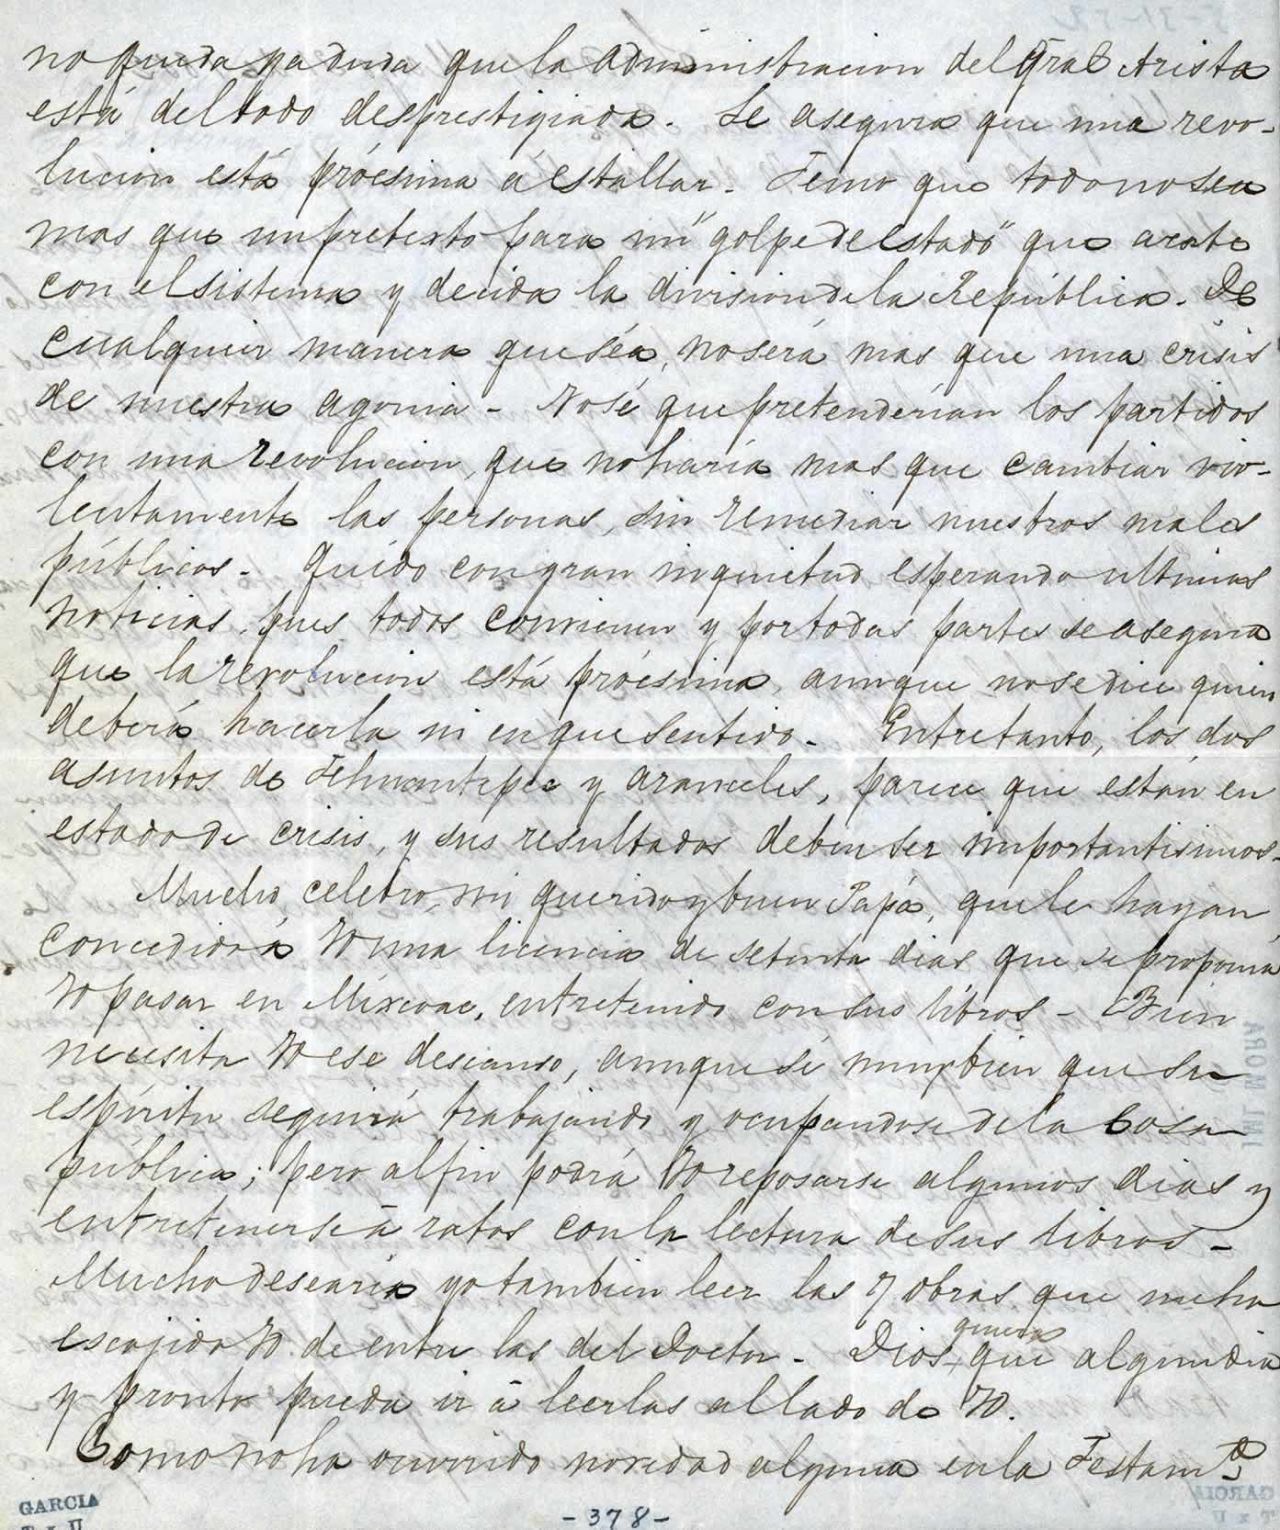 no queda ya duda que la administracion del Gral Arista
está del todo desprestigiada. Se asegura que una revo-
lucion está prócsima á estallar. Temo que todo no sea
mas que un pretexto para un "golpe de estado" que
con el sistema y decida la division de la República. De
cualquier manera que séa, no será mas que una crisis
de nuestra agonia - No sé que pretenderian los partidos
con una revolucion, que no haría mas que cambiar vio-
lentamente las personas, sin remediar nuestros males
públicos. Quedo con gran inquietud esperando ultimas
noticias, pues todos convienen y por todas partes se asegura
que la revolucion está prócsima, aunque no se dice quien
deberá hacerla ni en que sentido. Entretanto, los dos
asuntos de Tehuantepec y aranceles, parece que están en
estado de crisis, y sus resultados deben ser importantisimos.
Mucho celebro, mi querido y buen Papá, que le hayan
concedido á V una licencia de setenta dias que se proponia
V pasar en Mixcoac, entretenido con sus libros - Bien
necesita V ese descanso, aunque sé muy bien que su
espíritu seguirá trabajando y ocupandose de la Cosa
pública; pero al fin podrá V reposarse algunos dias y
entretenerse á ratos con la lectura de sus libros -
Mucho desearia yo tambien leer las 7 obras que me ha
escojido V. de entre las del Doctor. Dios quiera que algun dia
y pronto pueda ir á leerlas al lado de V.
Como no ha ocurrido novedad alguna en la Testam.
GARCIA
-378-
IML MORA
GARCIA